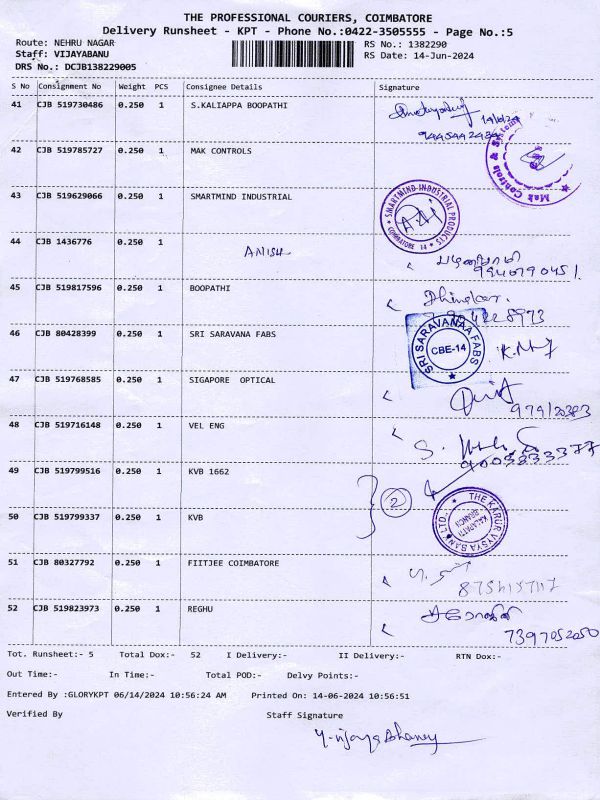 THE PROFESSIONAL COURIERS, COIMBATORE
Delivery Runsheet - KPT - Phone No.:0422-3505555 - Page No.:5
Route: NEHRU NAGAR
Staff: VIJAYABANU
DRS No.: DCJB138229005
RS No.: 1382290
RS Date: 14-Jun-2024
S No Consignment No Weight PCS Consignee Details Signature
41 CJB 519730486 0.250 1 S.KALIAPPA BOOPATHI
42 CJB 519785727 0.250 1 MAK CONTROLS
Mak Controls &
43 CJB 519629066 0.250 1 SMARTMIND INDUSTRIAL
SMARTMIND INDUSTRIAL PRODUCTS
COIMBATORE 14
44 CJB 1436776 0.250 1 ANISH
45 CJB 519817596 0.250 1 BOOPATHI
46 CJB 80428399 0.250 1 SRI SARAVANA FABS
SRI SARAVANAA FABS
CBE-14
47 CJB 519768585 0.250 1 SIGAPORE OPTICAL
48 CJB 519716148 0.250 1 VEL ENG
49 CJB 519799516 0.250 1 KVB 1662
2
50 CJB 519799337 0.250 1 KVB
THE KARUR VYSYA BANK LTD.
KALAPATTI
BRANCH
51 CJB 80327792 0.250 1 FIITJEE COIMBATORE
52 CJB 519823973 0.250 1 REGHU
7397052050
Tot. Runsheet:- 5 Total Dox:- 52 I Delivery:- II Delivery:- RTN Dox:-
Out Time:- In Time:- Total POD:- Delvy Points:-
Entered By :GLORYKPT 06/14/2024 10:56:24 AM Printed On: 14-06-2024 10:56:51
Verified By Staff Signature